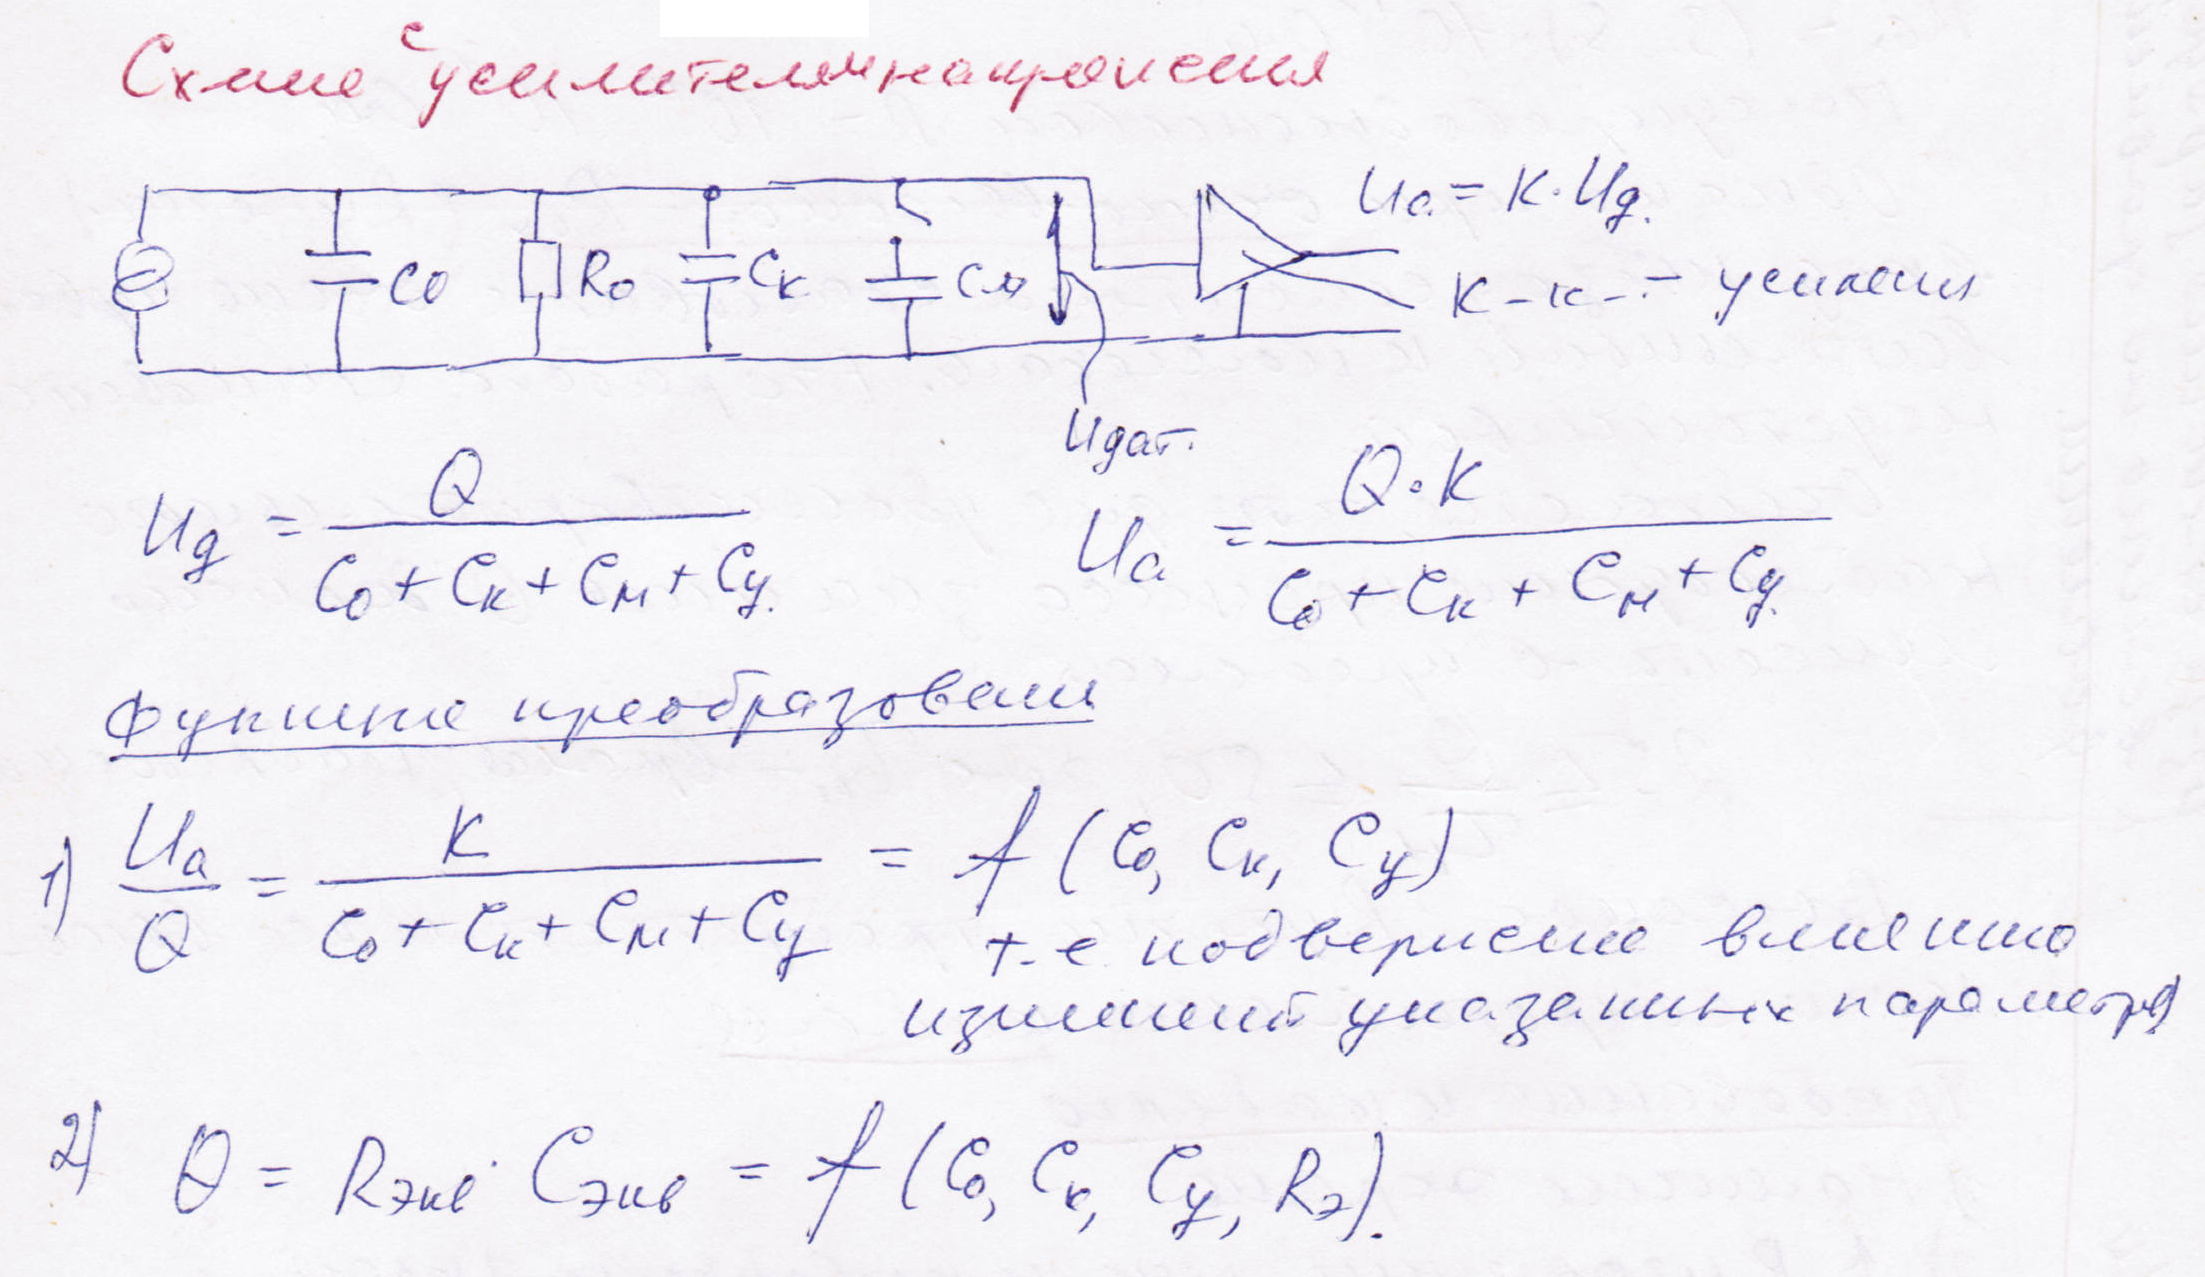 Схема с усилителем напряжения
Uа = K·Uд.
C0 R0 Cк Cм
K – к-т усиления
Uдат.
Uд = Q / (C0 + Cк + Cм + Cу)
Uа = Q·K / (C0 + Cк + Cм + Cу)
Функция преобразования
1) Uа / Q = K / (C0 + Cк + Cм + Cу) = f (C0, Cк, Cу)
т.е подвержена влиянию
изменений указанных параметров
2) θ = Rэкв · Cэкв = f (C0, Cк, Cу, Rэ).